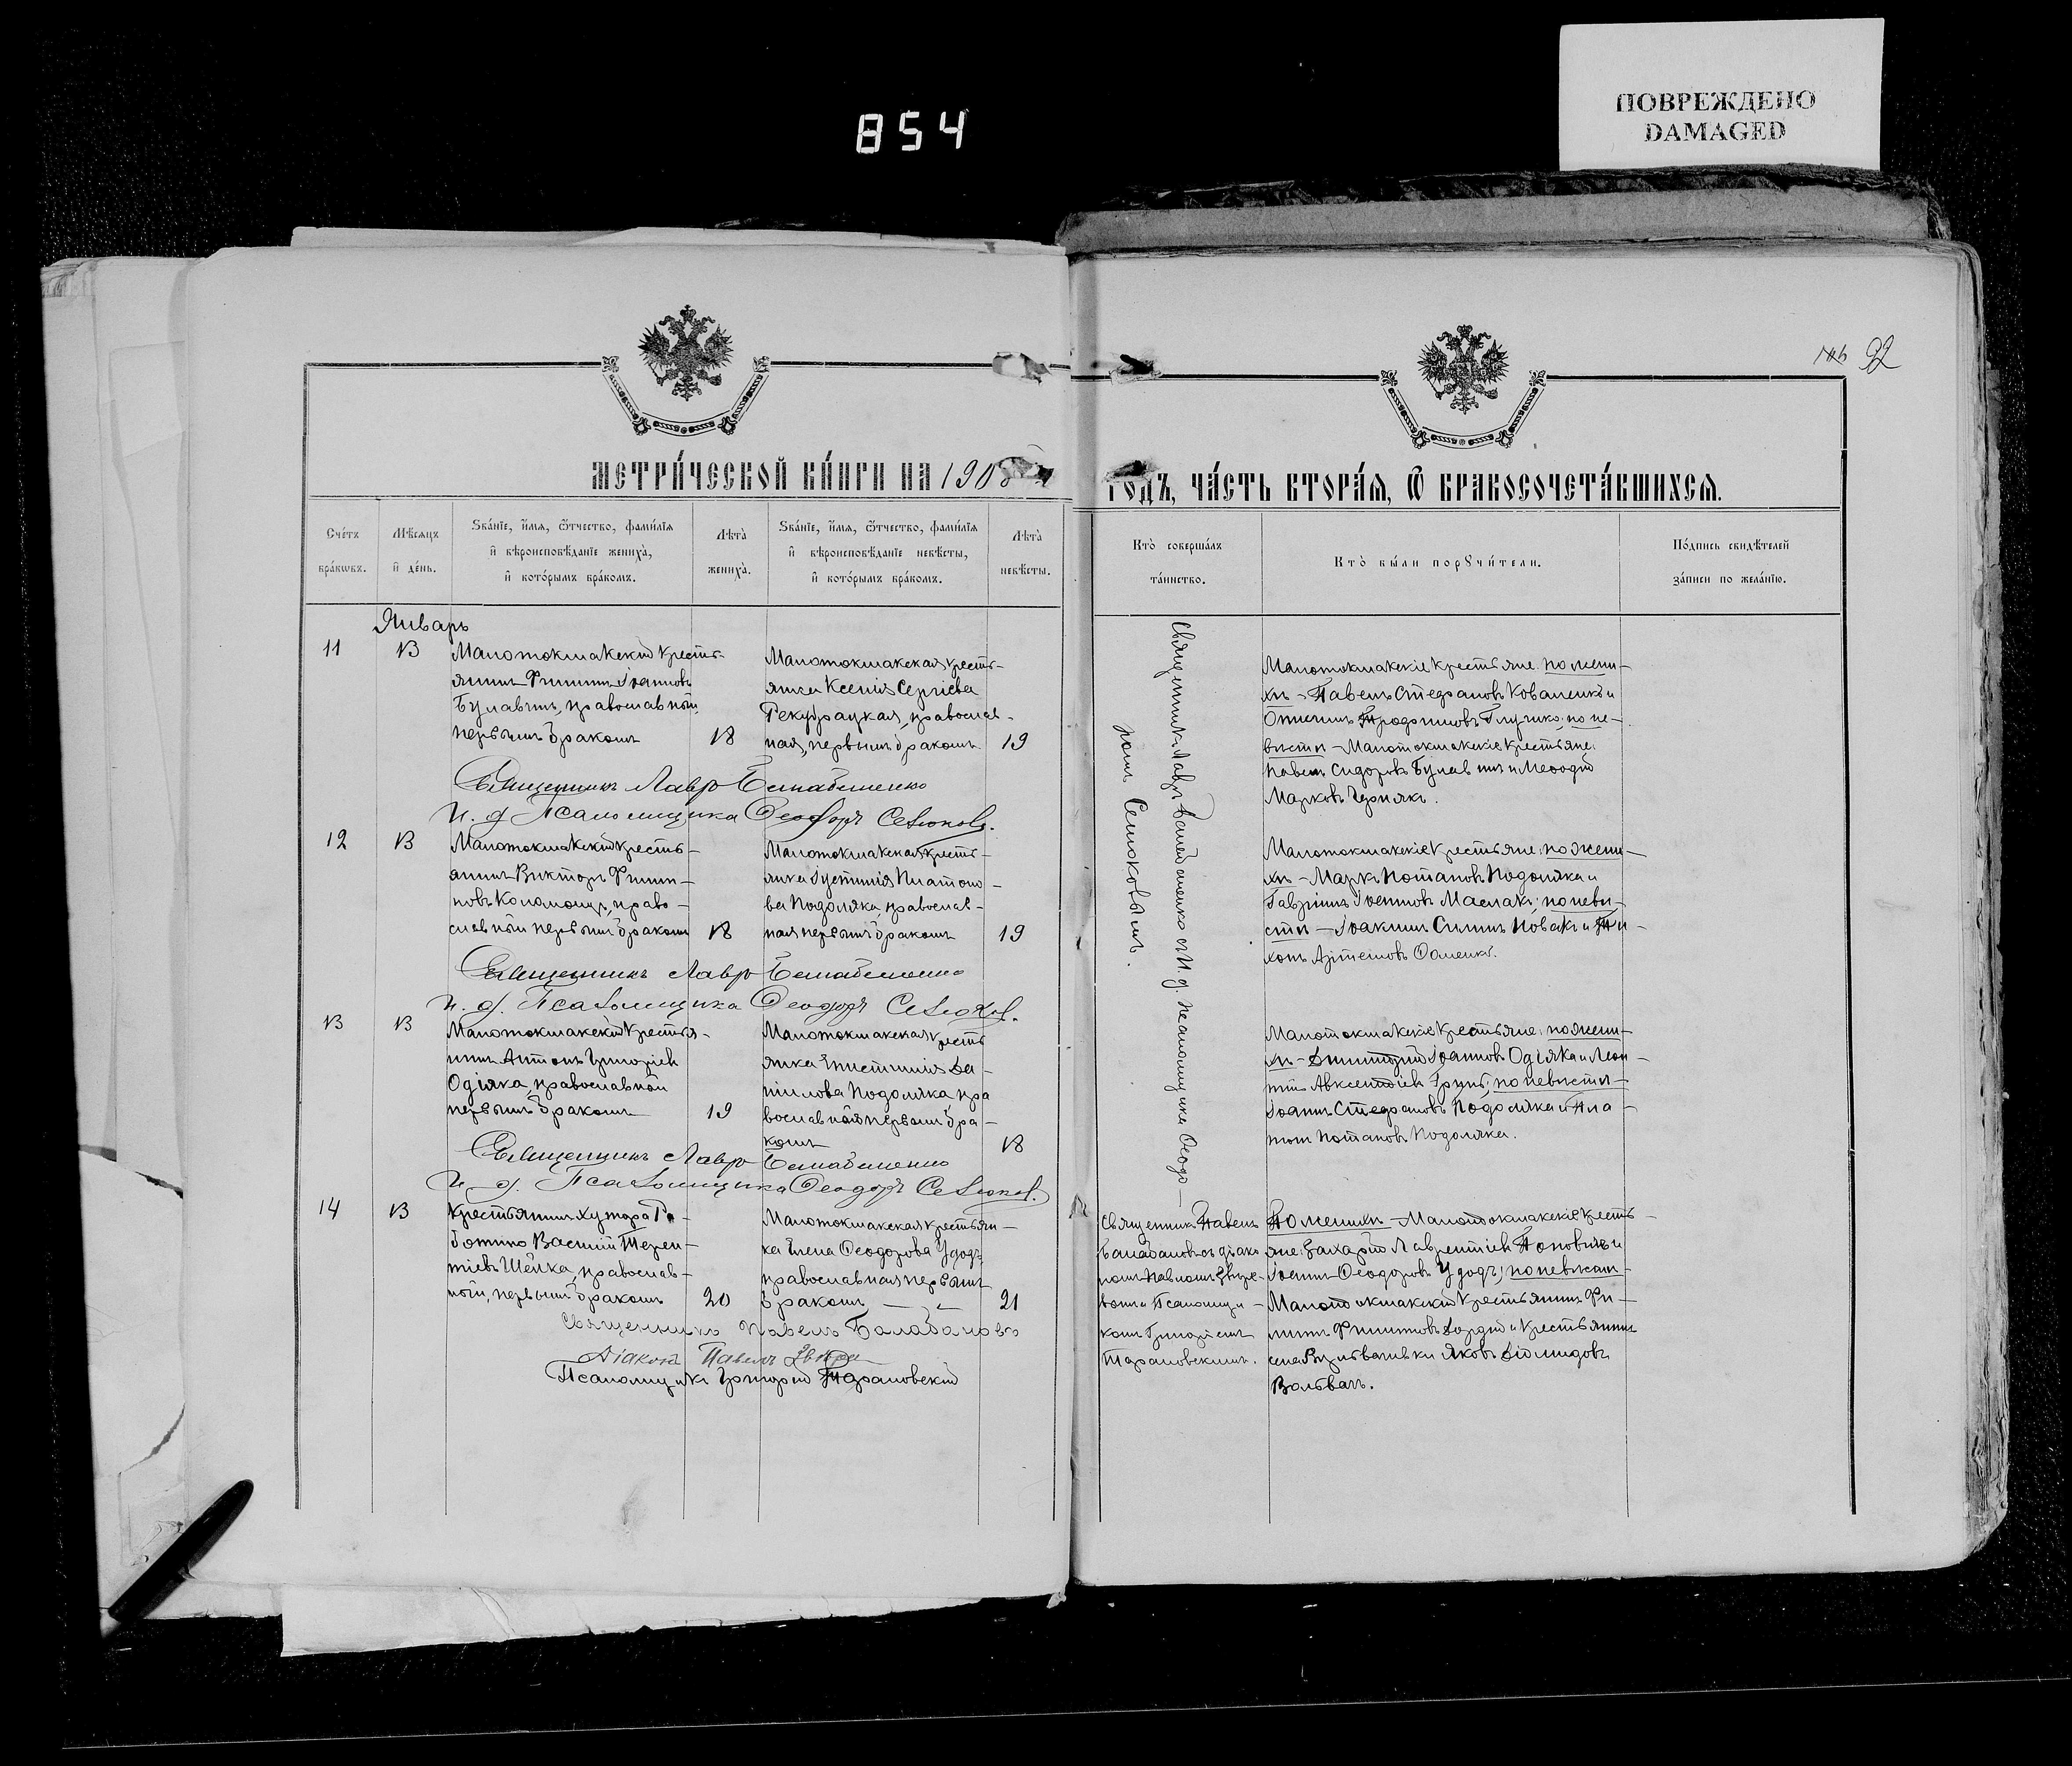 ПОВРЕЖДЕНО
DAMAGED
854
92
МЕТРИ́ЧЕСКОЙ КНИ́ГИ НА 1908
ГОДЪ, ЧА́СТЬ ВТОРА́Я, Ѽ БРАКОСОЧЕТА́ВШИХСЯ.
Сче́тъ бра́кѡвъ.
Мѣ́сяцъ и҆ де́нь.
Ѕва́нїе, и҆́мя, ѻ҆́тчество, фами́лїя
и҆ вѣроисповѣ́данїе жениха̀,
и҆ кото́рымъ бра́комъ.
Лѣта̀ жениха̀.
Ѕва́нїе, и҆́мя, ѻ҆́тчество, фами́лїя
и҆ вѣроисповѣ́данїе невѣ́сты,
и҆ кото́рымъ бра́комъ.
Лѣта̀ невѣ́сты.
Кто̀ соверша́лъ
та́инство.
Кто̀ бы́ли порꙋчи́тели.
По́дпись свидѣ́телей
за́писи по жела́нїю.
Январь
11
13
Малотокмакскій кресть-
янинъ Филиппъ Іоанновъ
Булавинъ, православный,
первымъ бракомъ
18
Малотокмакская кресть-
янка Ксенія Сергіева
православ-
ная, первымъ бракомъ
19
Малотокмакскіе крестьяне: по жени-
хѣ – Павелъ Стефановъ Коваленко и
Трофимовъ Глушко; по не-
вѣстѣ – Малотокмакскіе крестьяне:
Павелъ Сидоровъ Булавинъ и Меѳодій
Марковъ Чернякъ.
Священникъ Лавръ Балабаненко
И. д. Псаломщика Ѳеодоръ Сеноковъ.
12
13
Малотокмакскій кресть-
янинъ Викторъ Филип-
повъ Коломоецъ, право-
славный первымъ бракомъ
18
Малотокмакская кресть-
янка Іустинія Платоно-
ва Подоляка, православ-
ная первымъ бракомъ
19
Малотокмакскіе крестьяне: по жени-
хѣ – Маркъ Потаповъ Подоляка и
Гавріилъ Іоанновъ Маслакъ; по невѣ-
стѣ – Іоакимъ Новакъ и Ти-
хонъ Артемовъ Ѳоменко.
Священникъ Лавръ Балабаненко
И. д. Псаломщика Ѳеодоръ Сеноковъ.
13
13
Малотокмакскій крестья-
нинъ Антонъ Григоріевъ
Одіяка, православный
первымъ бракомъ
19
Малотокмакская кресть
янка Да-
ніилова Подоляка, пра
вославная первымъ бра-
комъ
18
Малотокмакскіе крестьяне: по жени-
хѣ – Димитрій Іоанновъ Одіяка и Леон-
тій Авксентіевъ по невѣстѣ –
Іоаннъ Стефановъ Подоляка и Пла-
тонъ Потаповъ Подоляка.
Священникъ Лавръ Балабаненко
И. д. Псаломщика Ѳеодоръ Сеноковъ.
Священникъ Лавръ Балабаненко съ И. д. псаломщика Ѳеодо-
ромъ Сеноковымъ.
14
13
Крестьянинъ хутора
Василій Терен-
тіевъ Шейка, православ-
ный, первымъ бракомъ
20
Малотокмакская крестьян-
ка Елена Ѳеодорова Удодъ,
православная первымъ
бракомъ
21
Священникъ Павелъ
Балабановъ съ діако
номъ Павломъ Звѣре-
вымъ и Псаломщи-
комъ Григоріемъ
Тарановскимъ.
По женихѣ – Малотокмакскіе кресть-
яне: Захарій Лаврентіевъ Поповичъ и
Іоаннъ Ѳеодоровъ Удодъ; по невѣстѣ –
Малотокмакскій крестьянинъ Фи-
липпъ Филипповъ и крестьянинъ
села Яковъ Діомидовъ
Вольвачъ.
Священникъ Павелъ Балабановъ
Діаконъ Павелъ
Псаломщикъ Григорій Тарановскій